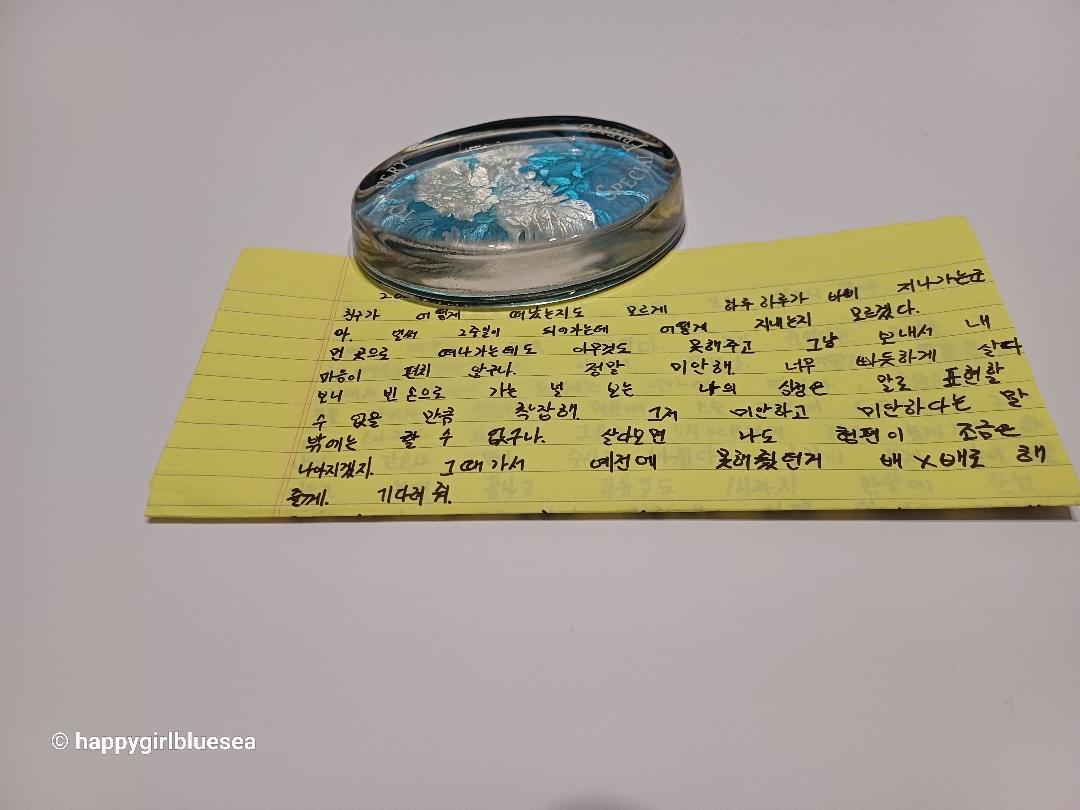 VERY
SPECIAL
FRIEND
친구가 어떻게 떠났는지도 모르게 하루 하루가 바삐 지나가는군
아. 벌써 2주일이 되어가는데 어떻게 지내는지 모르겠다.
먼 곳으로 떠나가는데도 아무것도 못해주고 그냥 보내서 내
마음이 편치 않구나. 정말 미안해. 너무 빠듯하게 살다
보니 빈 손으로 가는 널 보는 나의 심정은 말로 표현할
수 없을 만큼 착잡해. 그저 미안하고 미안하다는 말
밖에는 할 수 없구나. 살다보면 나도 형편이 조금은
나아지겠지. 그때 가서 예전에 못해줬던거 배×배로 해
줄게. 기다려 줘.
© happygirlbluesea